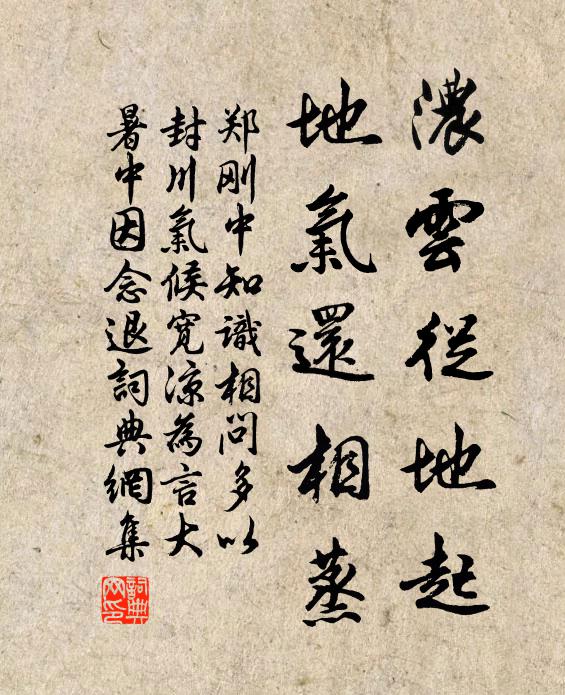 濃雲從地起
地氣還相蒸
郑刚中知識相問多以
封川氣候寬凉為言大
暑中因念退詞典網集
詞典
网印